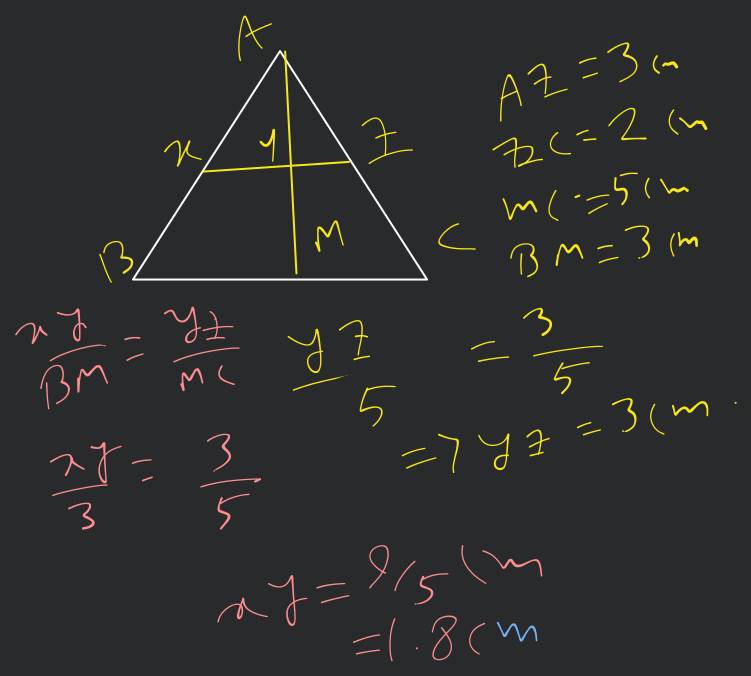 A
x y Z
B M C
AZ = 3 cm
ZC = 2 cm
MC = 5 cm
BM = 3 cm
xy/BM = yz/MC
yz/5 = 3/5
=> yz = 3 cm.
xy/3 = 3/5
xy = 9/5 cm
= 1.8 cm